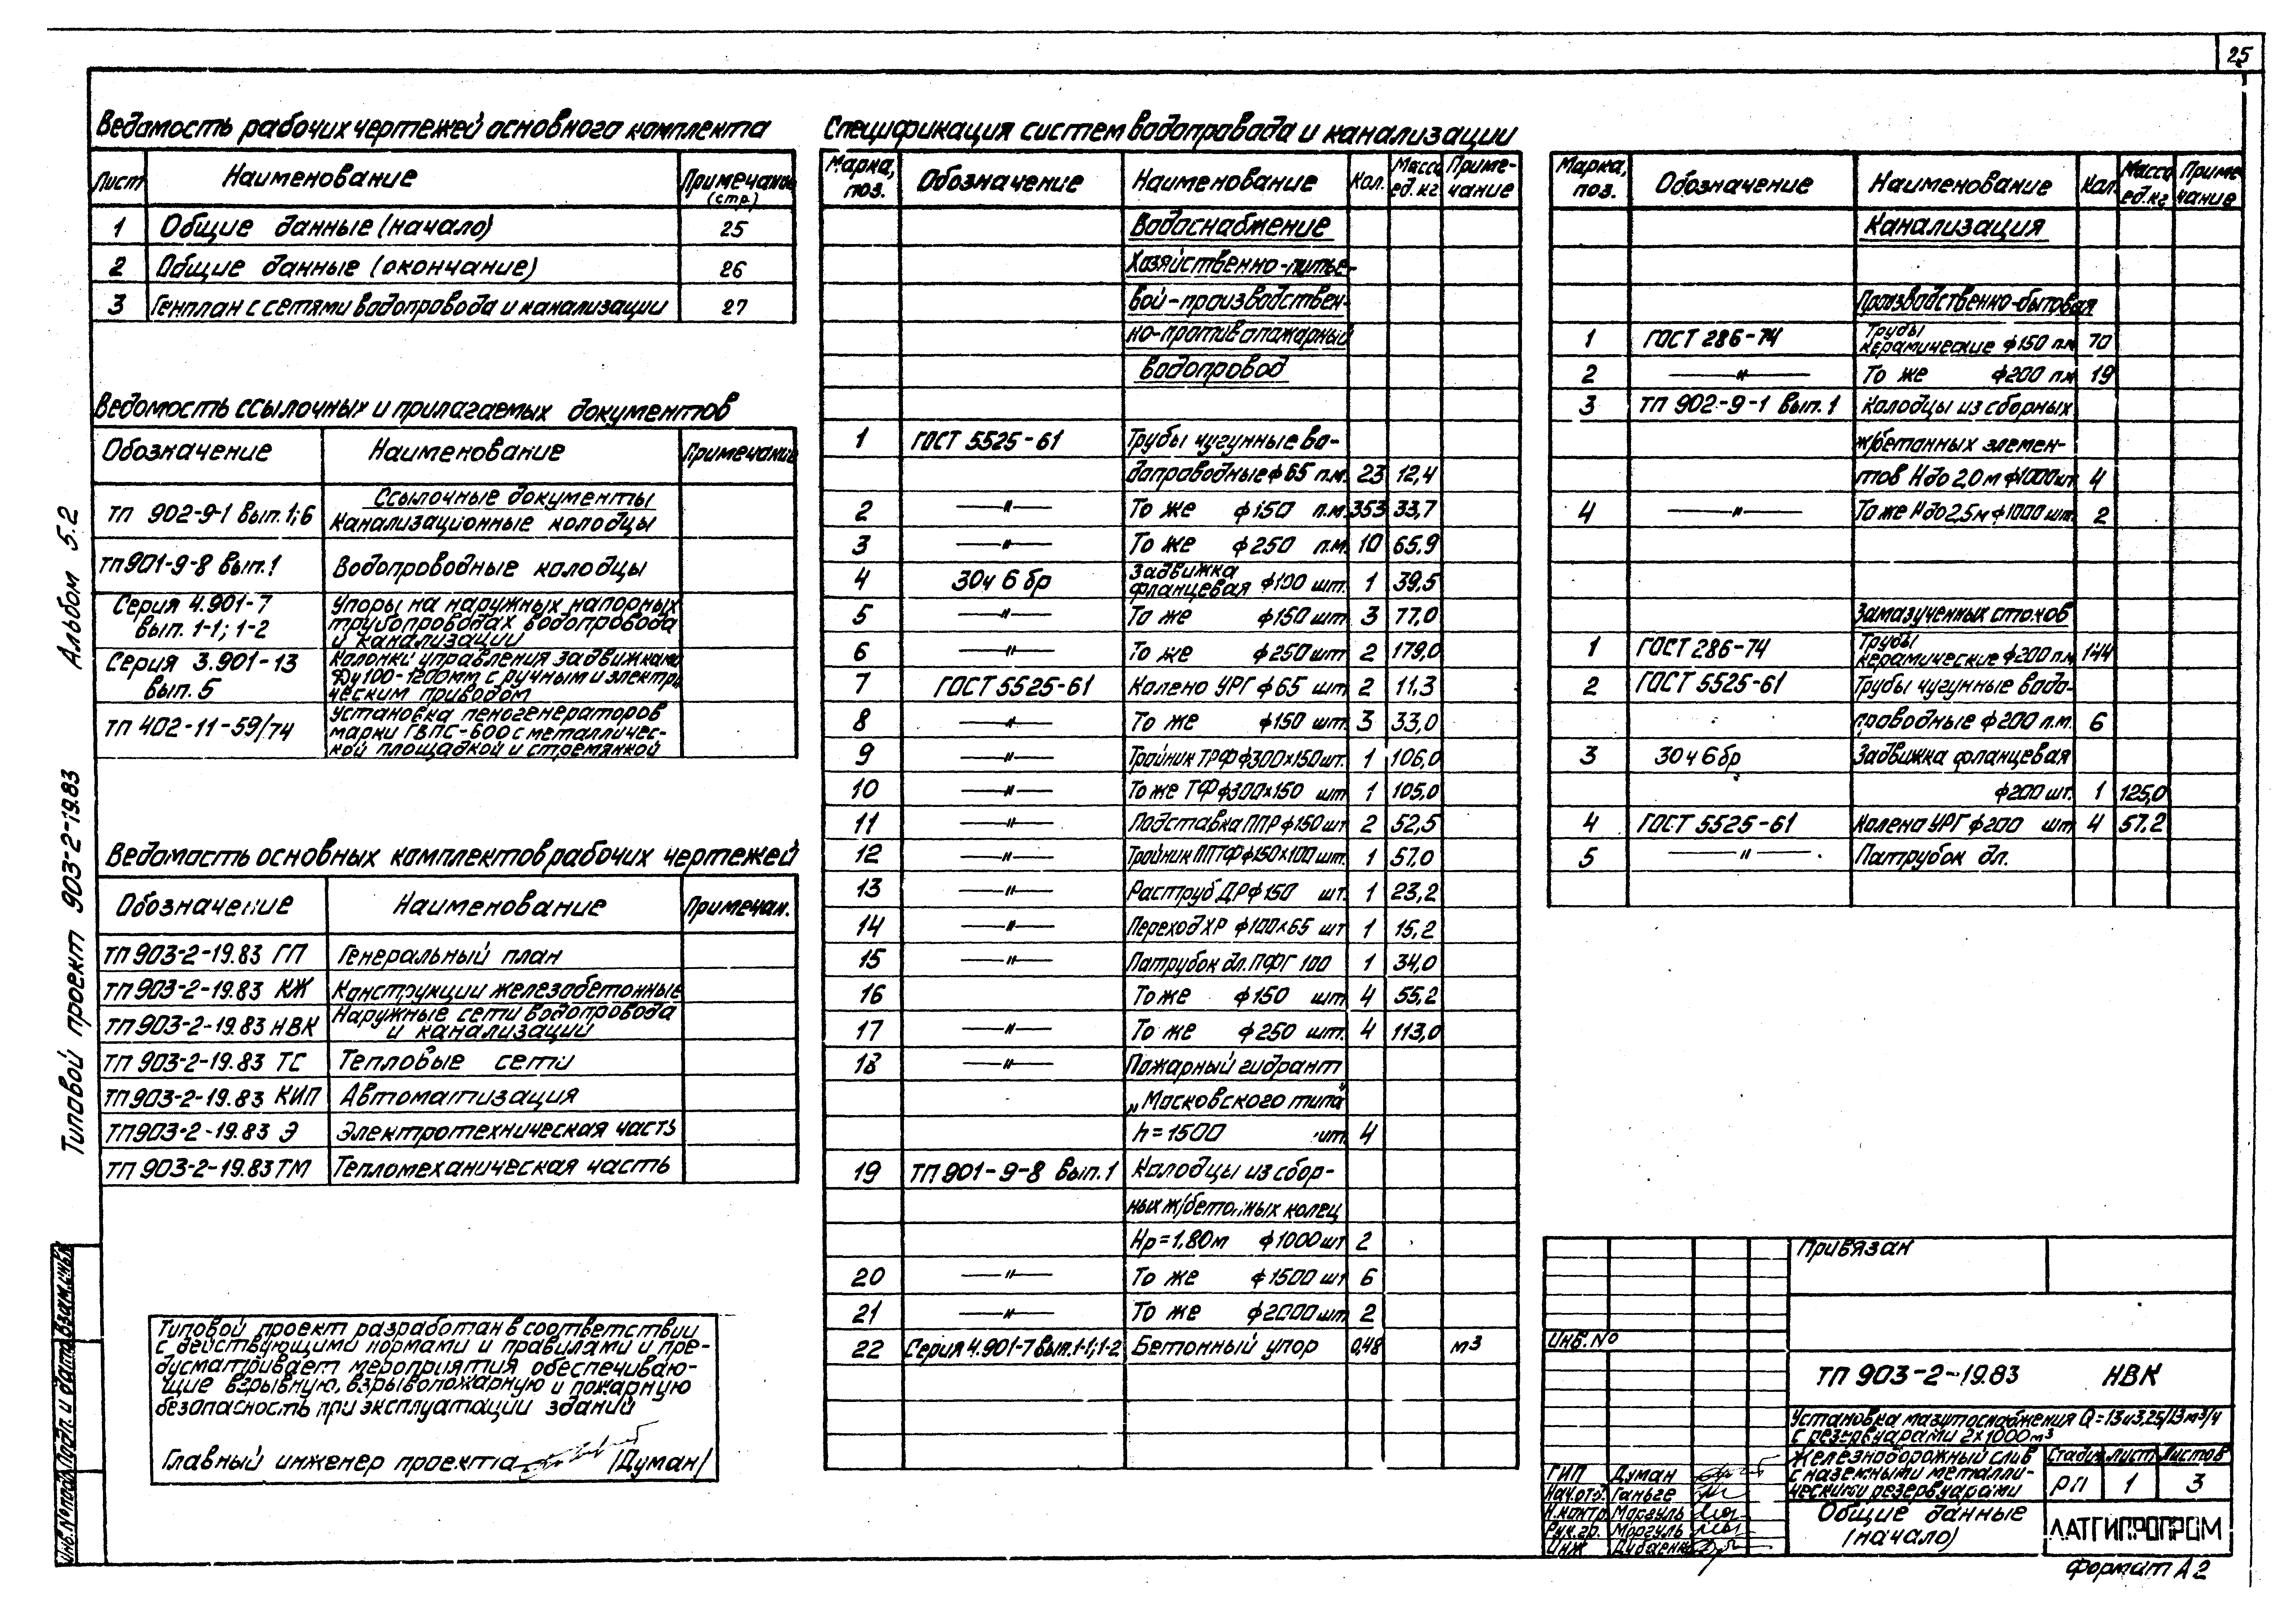 25
Ведомость рабочих чертежей основного комплекта
Лист Наименование Примечание (стр.)
1 Общие данные (начало) 25
2 Общие данные (окончание) 26
3 Генплан с сетями водопровода и канализации 27
Ведомость ссылочных и прилагаемых документов
Обозначение Наименование Примечание
Ссылочные документы
ТП 902-9-1 вып. 1; 6 Канализационные колодцы
ТП 901-9-8 вып. 1 Водопроводные колодцы
Серия 4.901-7 вып. 1-1; 1-2 Упоры на наружных напорных
трубопроводах водопровода
и канализации
Серия 3.901-13 вып. 5 Колонки управления задвижками
Ду 100-1200мм с ручным и электри-
ческим приводом
ТП 402-11-59/74 Установка пеногенераторов
марки ГВПС-600 с металличес-
кой площадкой и стремянкой
Ведомость основных комплектов рабочих чертежей
Обозначение Наименование Примечан.
ТП 903-2-19.83 ГП Генеральный план
ТП 903-2-19.83 КЖ Конструкции железобетонные
ТП 903-2-19.83 НВК Наружные сети водопровода
и канализации
ТП 903-2-19.83 ТС Тепловые сети
ТП 903-2-19.83 КИП Автоматизация
ТП 903-2-19.83 Э Электротехническая часть
ТП 903-2-19.83 ТМ Тепломеханическая часть
Типовой проект разработан в соответствии
с действующими нормами и правилами и пре-
дусматривает мероприятия обеспечиваю-
щие взрывную, взрывопожарную и пожарную
безопасность при эксплуатации зданий
Главный инженер проекта /Думан/
Спецификация систем водопровода и канализации
Марка, поз. Обозначение Наименование Кол. Масса ед. кг Приме-чание
Водоснабжение
Хозяйственно-питье-
вой-производствен-
но-противопожарный
водопровод
1 ГОСТ 5525-61 Трубы чугунные во-
допроводные ф 65 п.м. 23 12,4
2 —"— То же ф150 п.м. 353 33,7
3 —"— То же ф250 п.м. 10 65,9
4 30ч 6 бр Задвижка
фланцевая ф100 шт. 1 39,5
5 —"— То же ф150 шт 3 77,0
6 —"— То же ф250 шт 2 179,0
7 ГОСТ 5525-61 Колено УРГ ф65 шт 2 11,3
8 —"— То же ф150 шт. 3 33,0
9 —"— Тройник ТРФ ф300х150 шт. 1 106,0
10 —"— То же ТФ ф300х150 шт 1 105,0
11 —"— Подставка ППР ф150 шт 2 52,5
12 —"— Тройник ППТФ ф150х100 шт. 1 57,0
13 —"— Раструб ДР ф150 шт. 1 23,2
14 —"— Переход ХР ф100х65 шт 1 15,2
15 —"— Патрубок дл. ПФГ 100 1 34,0
16 То же ф150 шт 4 55,2
17 —"— То же ф250 шт. 4 113,0
18 —"— Пожарный гидрант
„Московского типа"
h=1500 шт 4
19 ТП 901-9-8 вып. 1 Колодцы из сбор-
ных ж/бетонных колец
Нр=1,80м ф1000 шт 2
20 —"— То же ф1500 шт 6
21 —"— То же ф2000 шт 2
22 Серия 4.901-7 вып. 1-1; 1-2 Бетонный упор 0,48 м3
Марка, поз. Обозначение Наименование Кол. Масса ед. кг Приме-чание
Канализация
Производственно-бытовая
1 ГОСТ 286-74 Трубы
керамические ф150 п.м 70
2 —"— То же ф200 п.м 19
3 ТП 902-9-1 вып. 1 Колодцы из сборных
ж/бетонных элемен-
тов Н до 2,0 м ф1000 шт 4
4 —"— То же Н до 2,5 м ф1000 шт. 2
Замазученных стоков
1 ГОСТ 286-74 Трубы
керамические ф200 п.м 144
2 ГОСТ 5525-61 Трубы чугунные водо-
проводные ф200 п.м. 6
3 30ч 6 бр Задвижка фланцевая
ф200 шт. 1 125,0
4 ГОСТ 5525-61 Колено УРГ ф200 шт 4 57.2
5 —"— Патрубок дл.
Привязан
Инв. №
ТП 903-2-19.83 НВК
Установка мазутоснабжения Q=13 и 3,25/13 м3/ч
с резервуарами 2х1000м3
Железнодорожный слив
с наземными металли-
ческими резервуарами
Стадия Лист Листов
РП 1 3
Общие данные
(начало)
ЛАТГИПРОПРОМ
ГИП Думан
Нач.отд. Ганьге
Н.контр. Моргуль
Рук.гр. Моргуль
Инж
Формат А2
Альбом 5.2
Типовой проект 903-2-19.83
Взам.инв.№
Подп. и дата
Инв.№ подл.